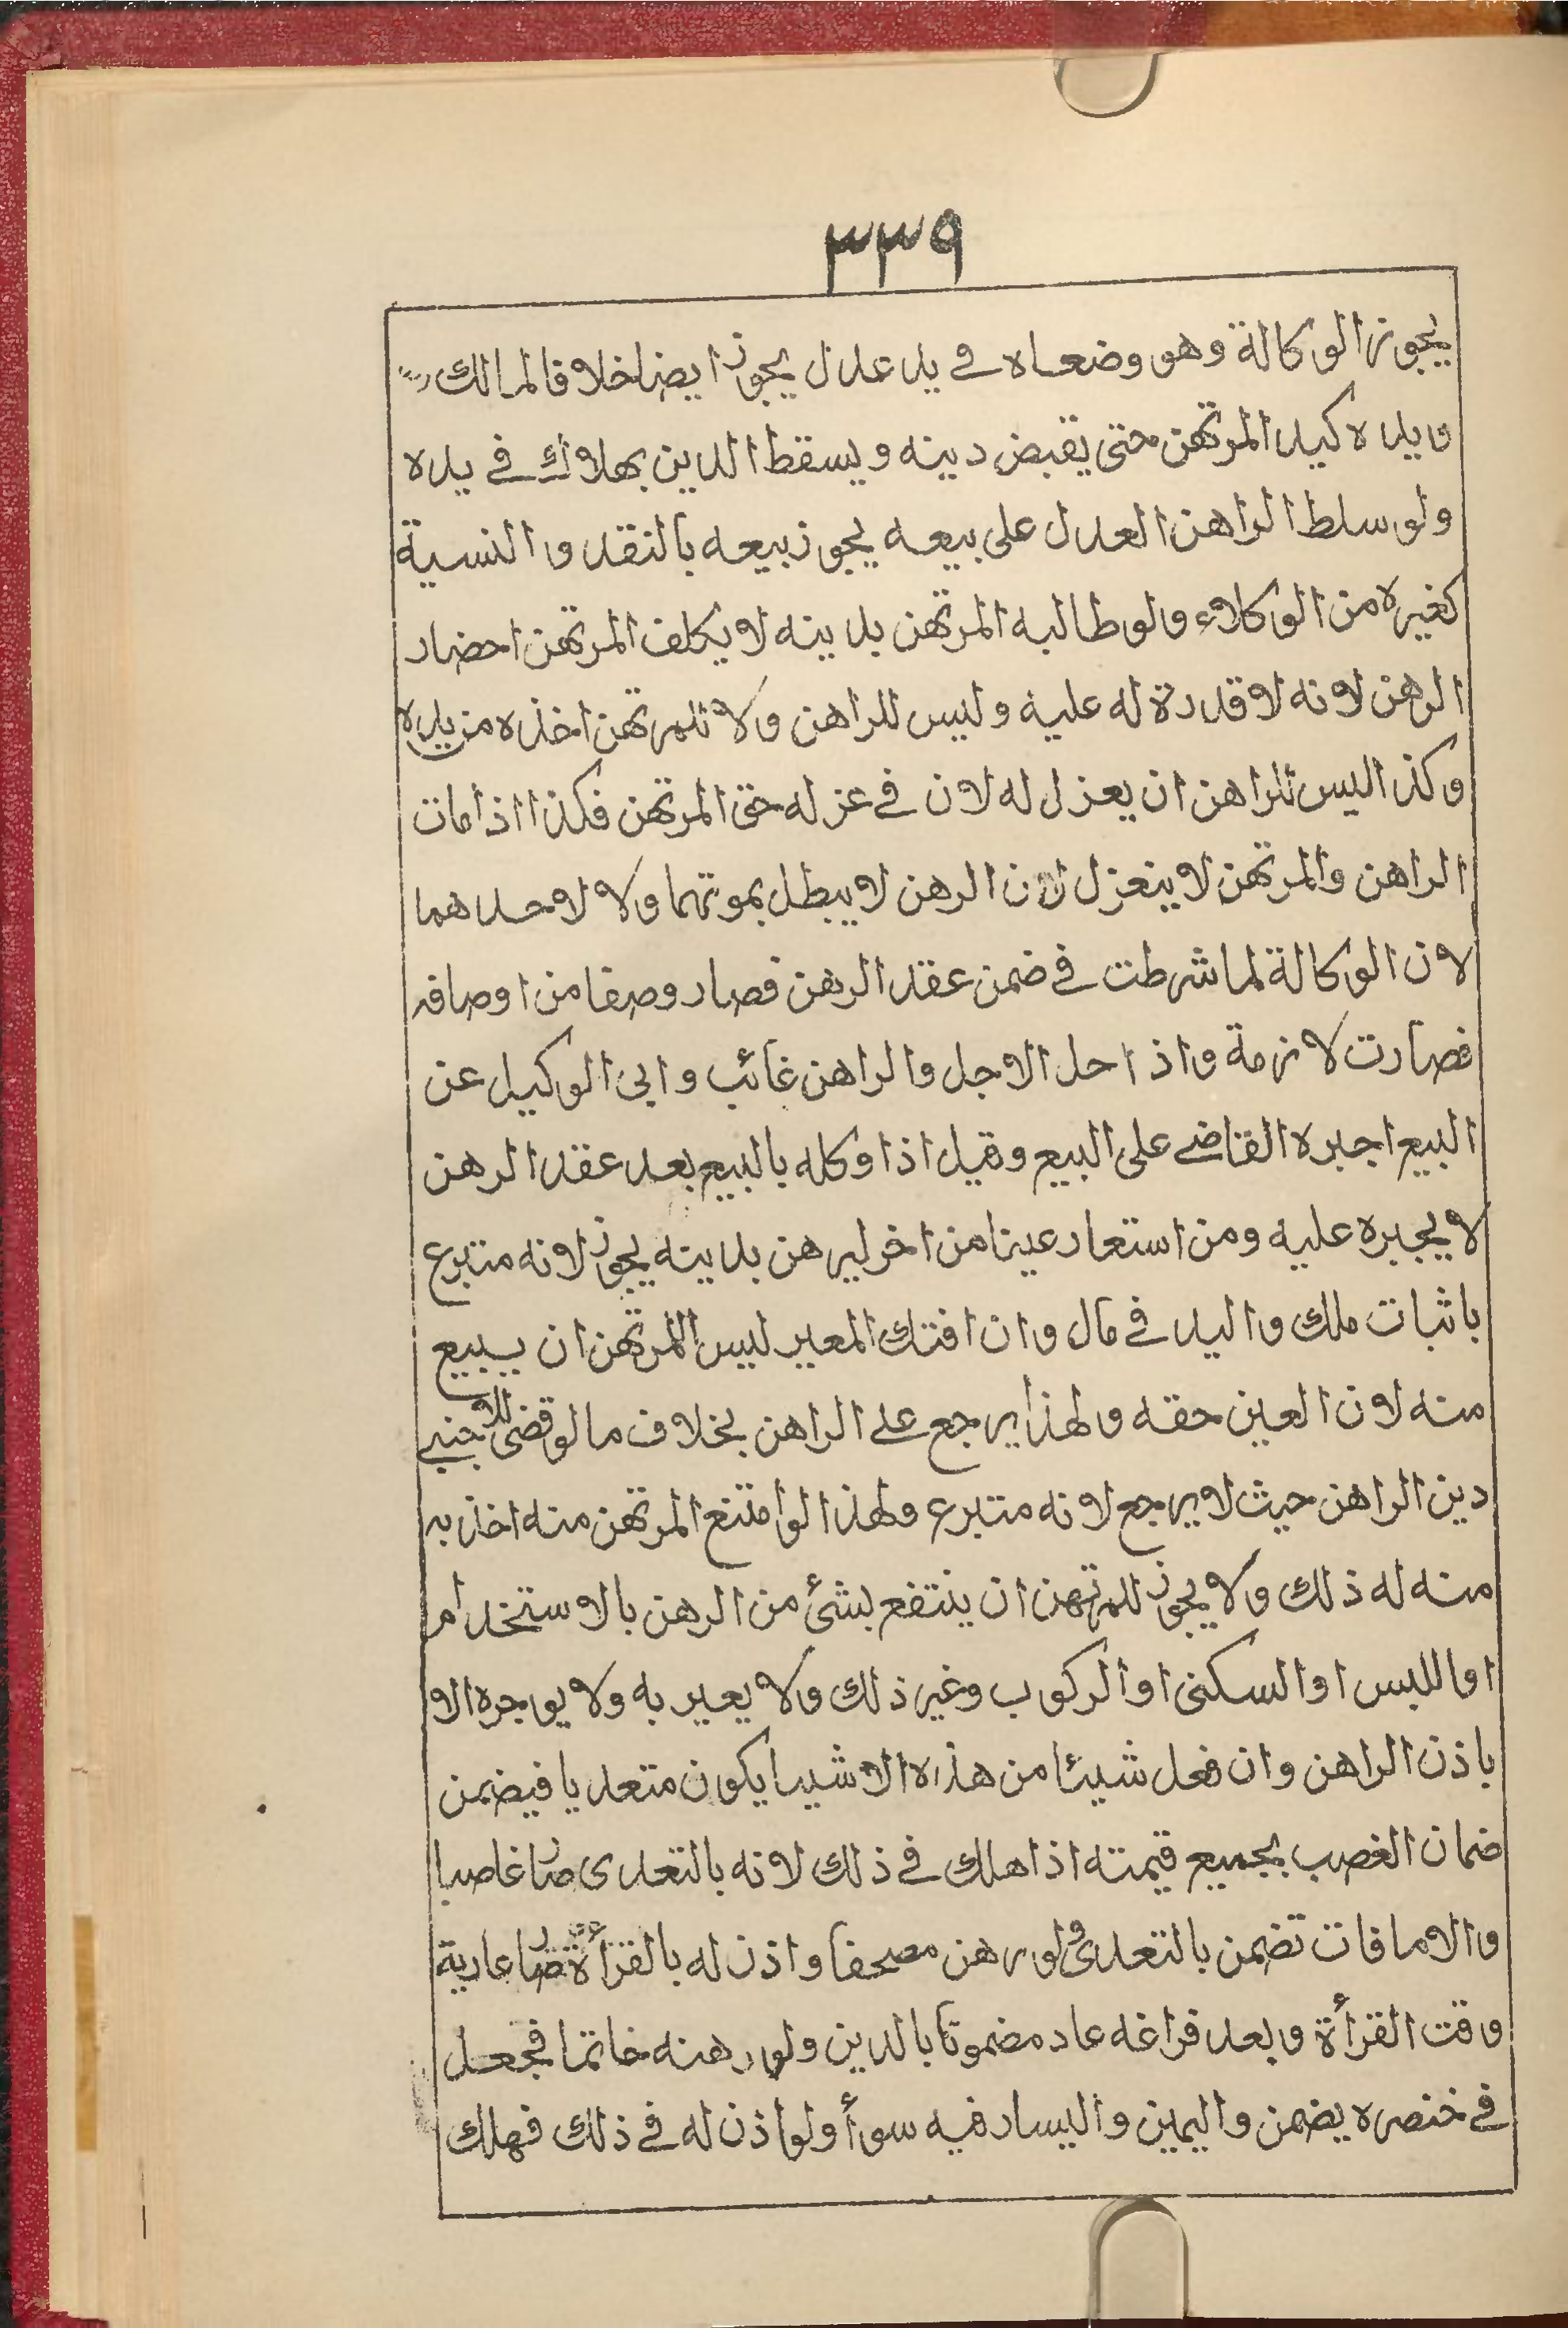 ٣٣٩
يجوز الوكالة وهو وضعاه في يد عدل يجوز ايضا خلافا لمالك رح
ويده كيد المرتهن حتى يقبض دينه ويسقط الدين بهلاكه في يده
ولو سلط الراهن العدل على بيعه يجوز بيعه بالنقد والنسية
كغيره من الوكلاء ولو طالبه المرتهن بدينه لا يكلف المرتهن احضار
الرهن لانه لا قدرة له عليه وليس للراهن ولا للمرتهن اخذه من يده
وكذا ليس للراهن ان يعزل له لان في عزله حق المرتهن فكذا اذا مات
الراهن والمرتهن لا ينعزل لان الرهن لا يبطل بموتهما ولا لاحدهما
لان الوكالة لما شرطت في ضمن عقد الرهن فصار وصفا من اوصافه
فصارت لازمة واذا حل الاجل والراهن غائب وابى الوكيل عن
البيع اجبره القاضي على البيع وقيل اذا وكله بالبيع بعد عقد الرهن
لا يجبره عليه ومن استعار عينا من اخر ليرهن بدينه يجوز لانه متبرع
باثبات ملك واليد في مال وان افتك المعير ليس للمرتهن ان يبيع
منه لان العين حقه ولهذا يرجع على الراهن بخلاف ما لو قضى للاجنبي
دين الراهن حيث لا يرجع لانه متبرع ولهذا لو امتنع المرتهن منه اخذ به
منه له ذلك ولا يجوز للمرتهن ان ينتفع بشئ من الرهن بالاستخدام
او اللبس او السكنى او الركوب وغير ذلك ولا يعير به ولا يوجره الا
باذن الراهن وان فعل شيئا من هذه الاشيا يكون متعديا فيضمن
ضمان الغصب بجميع قيمته اذا هلك في ذلك لانه بالتعدى صار غاصبا
والامانات تضمن بالتعدى ولو رهن مصحفا واذن له بالقرأة فصار عارية
وقت القرأة وبعد فراغه عاد مضمونا بالدين ولو رهنه خاتما فجعل
في خنصره يضمن واليمين واليسار فيه سوأ ولو اذن له في ذلك فهلك